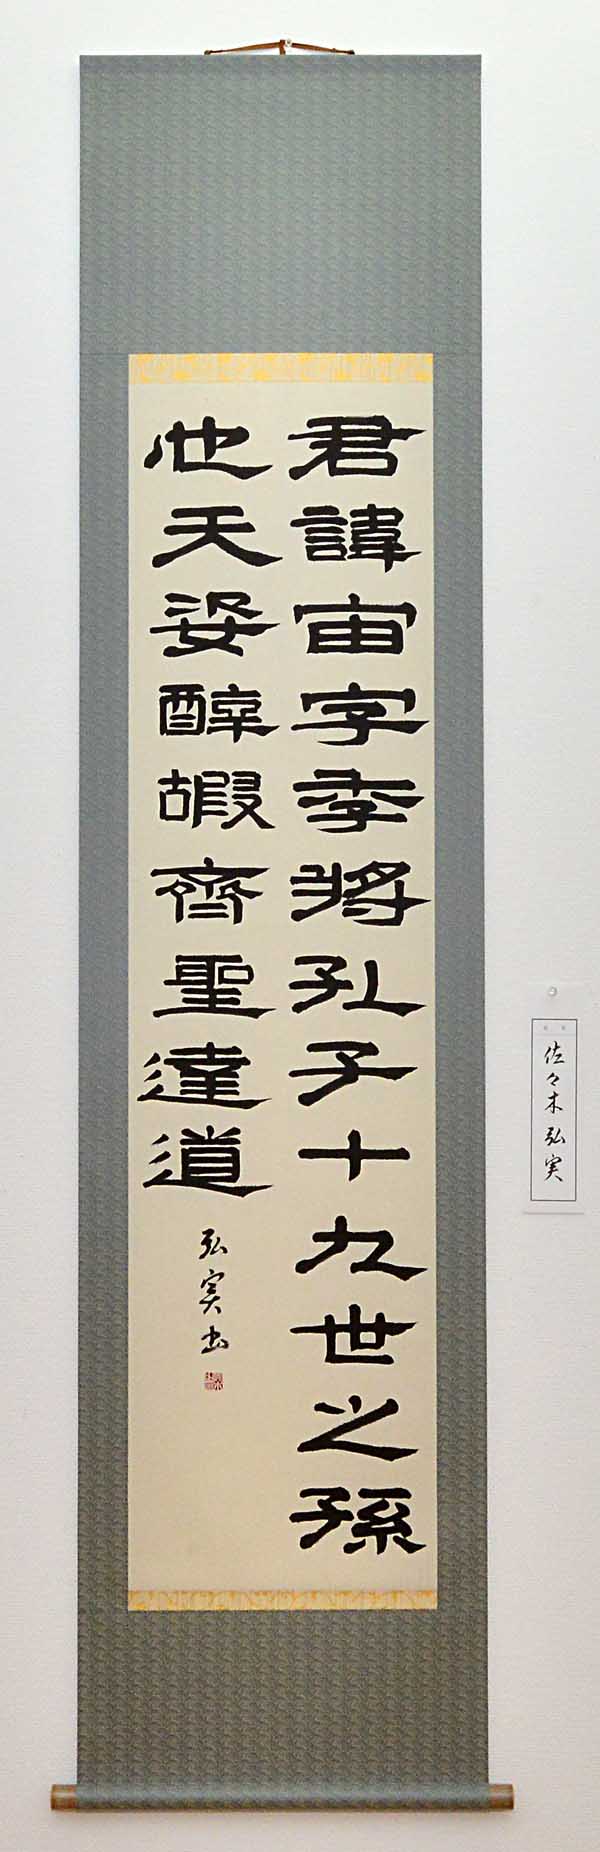 君諱宙字季将孔子十九世之孫
也天姿醇嘏齊聖達道
弘実書
佐々木弘実